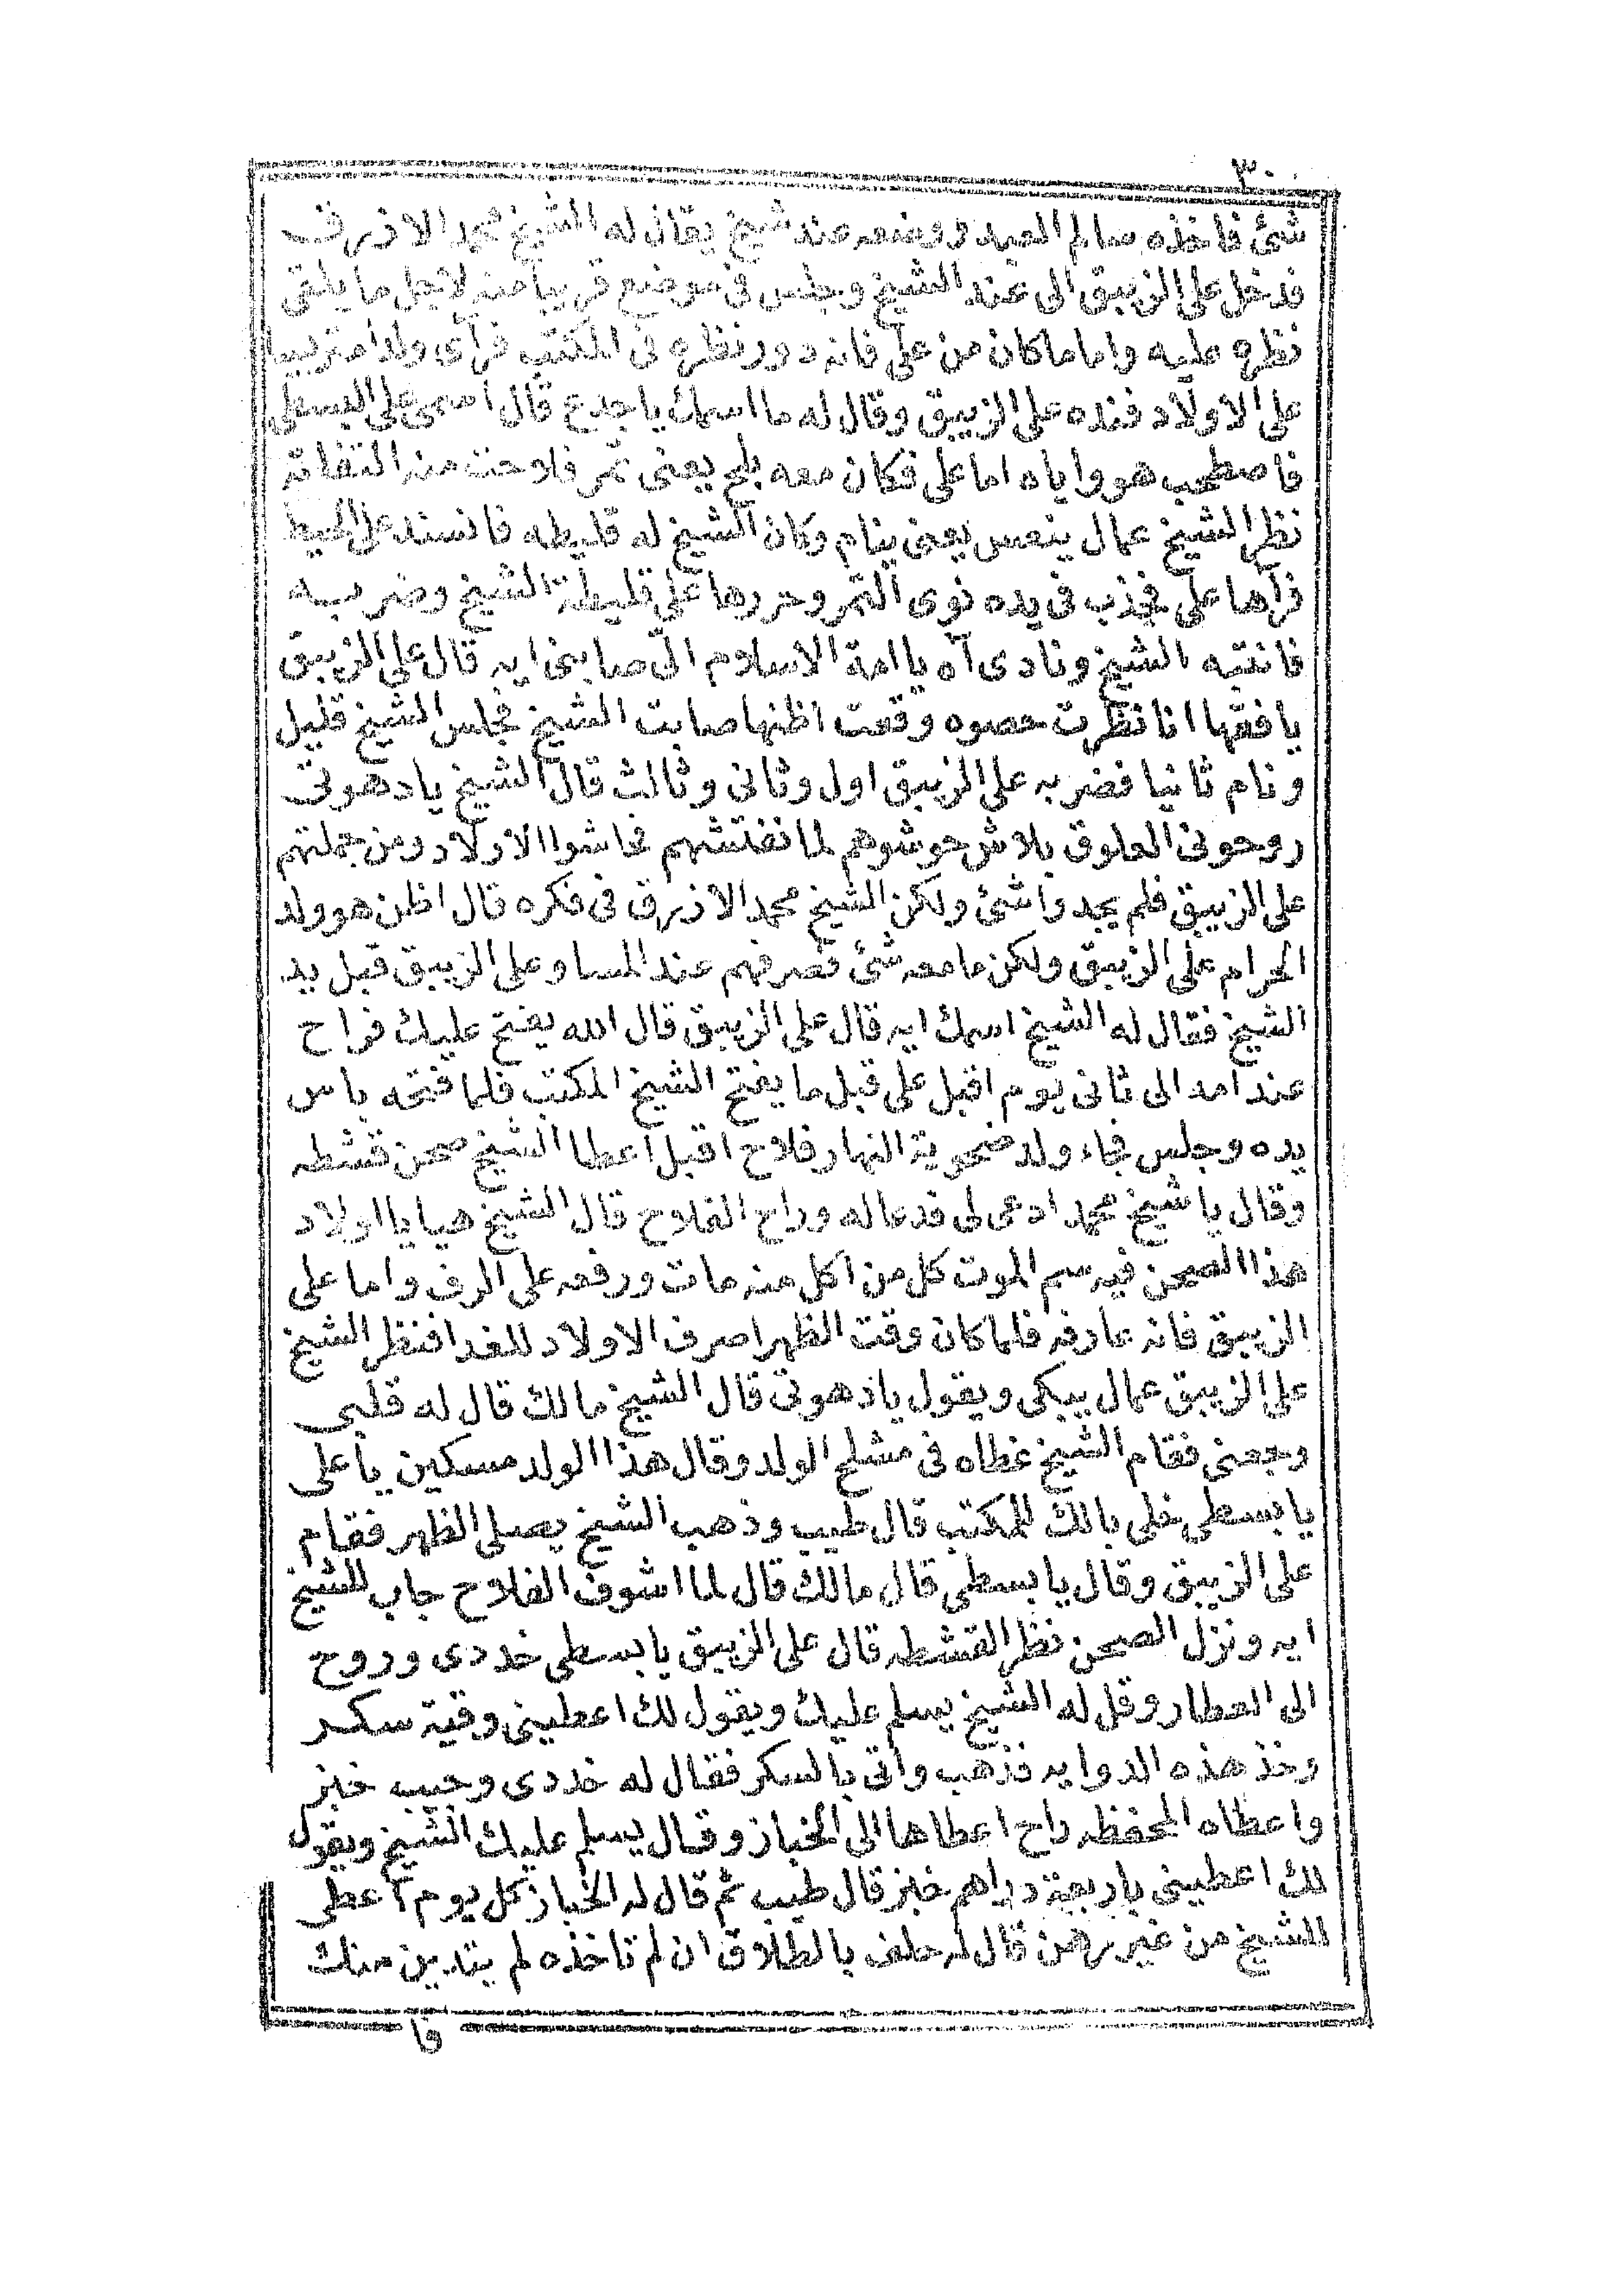 ٣٠
شئ فاخذه سالم العبد ووضعه عند شيخ يقال له الشيخ محمد الازرق
فدخل على الزيبق الى عند الشيخ وجلس فى موضع قريبا منه لاجل ما يلقى
نظره عليه واما ما كان من على فانه دور نظره فى المكتب فرأى ولدا متربيا
على الاولاد فنده على الزيبق وقال له ما اسمك يا جدع قال اسمى على البسطى
فاصطحب هو واياه اما على فكان معه بلح يعنى تمر فلاحت منه التفاتة
نظر الشيخ عمال ينعس يعنى ينام وكان الشيخ له قليطه فانسند على الحيط
فرآها على فجذب فى يده نوى التمر وحررها على قليطة الشيخ وضربه
فانتبه الشيخ ونادى آه يا امة الاسلام الى صابنى ايه قال على الزيبق
يا فقها انا نظرت حصوه وقعت اظنها صابت الشيخ فجلس الشيخ قليل
ونام ثانيا فضربه على الزيبق اول وثانى وثالث قال الشيخ يا دهوتى
روحونى العلوق بلاش حوشوهم لما نفتشهم فحاشوا الاولاد ومن جملتهم
على الزيبق فلم يجدوا شئ ولكن الشيخ محمد الازرق فى فكره قال اظن هو ولد
الحرام على الزيبق ولكن ما معه شئ فصرفهم عند المسا وعلى الزيبق قبل يد
الشيخ فقال له الشيخ اسمك ايه قال على الزيبق قال الله يفتح عليك فراح
عند امه الى ثانى يوم اقبل على قبل ما يفتح الشيخ المكتب فلما فتحه باس
يده وجلس فجاء ولد ضحوية النهار فلاح اقبل اعطا الشيخ صحن قشطه
وقال يا شيخ محمد ادعى لى فدعا له وراح الفلاح قال الشيخ هيا يا اولاد
هذا الصحن فيه سم الموت كل من اكل منه مات ورفعه على الرف واما على
الزيبق فانه عارفه فلما كان وقت الظهر اصرف الاولاد للغدا فنظر الشيخ
على الزيبق عمال يبكى ويقول يا دهوتى قال الشيخ مالك قال له قلبى
وجعنى فقام الشيخ غطاه فى مشلح الولد وقال هذا الولد مسكين يا على
يا بسطى خلى بالك للمكتب قال طيب وذهب الشيخ يصلى الظهر فقام
على الزيبق وقال يا بسطى قال مالك قال لما اشوف الفلاح جاب للشيخ
ايه ونزل الصحن نظر القشطه قال على الزيبق يا بسطى خد دى وروح
الى العطار وقل له الشيخ يسلم عليك ويقول لك اعطينى وقية سكر
وخذ هذه الدوايه فذهب وأتى بالسكر فقال له خد دى وجيب خبز
واعطاه المحفظه راح اعطاها الى الخباز وقال يسلم عليك الشيخ ويقول
لك اعطينى باربعة دراهم خبز قال طيب ثم قال له الخباز كل يوم اعطى
للشيخ من غير رهن قال له حلف بالطلاق ان لم تاخذه لم يتدين منك